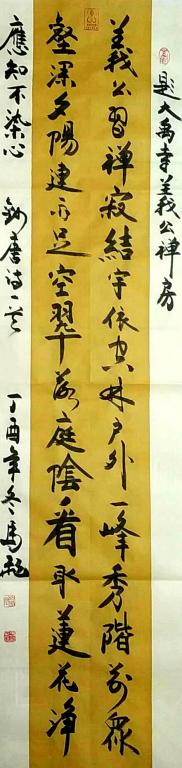 題大禹寺義公禪房
義公習禪寂結宇依空林戶外一峰秀階前衆
壑深夕陽連雨足空翠落庭陰看取蓮花淨
應知不染心 錄唐詩一首 丁酉年冬馬